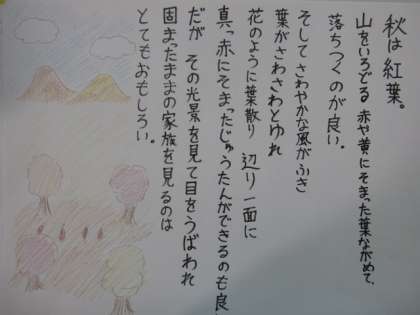 秋は紅葉。
山をいろどる 赤や黄にそまった葉ながめて、
落ちつくのが良い。
そしてさわやかな風がふき
葉がさわさわとゆれ
花のように葉散り 辺り一面に
真っ赤にそまったじゅうたんができるのも良
だが その光景を見て目をうばわれ
固まったままの家族を見るのは
とてもおもしろい。